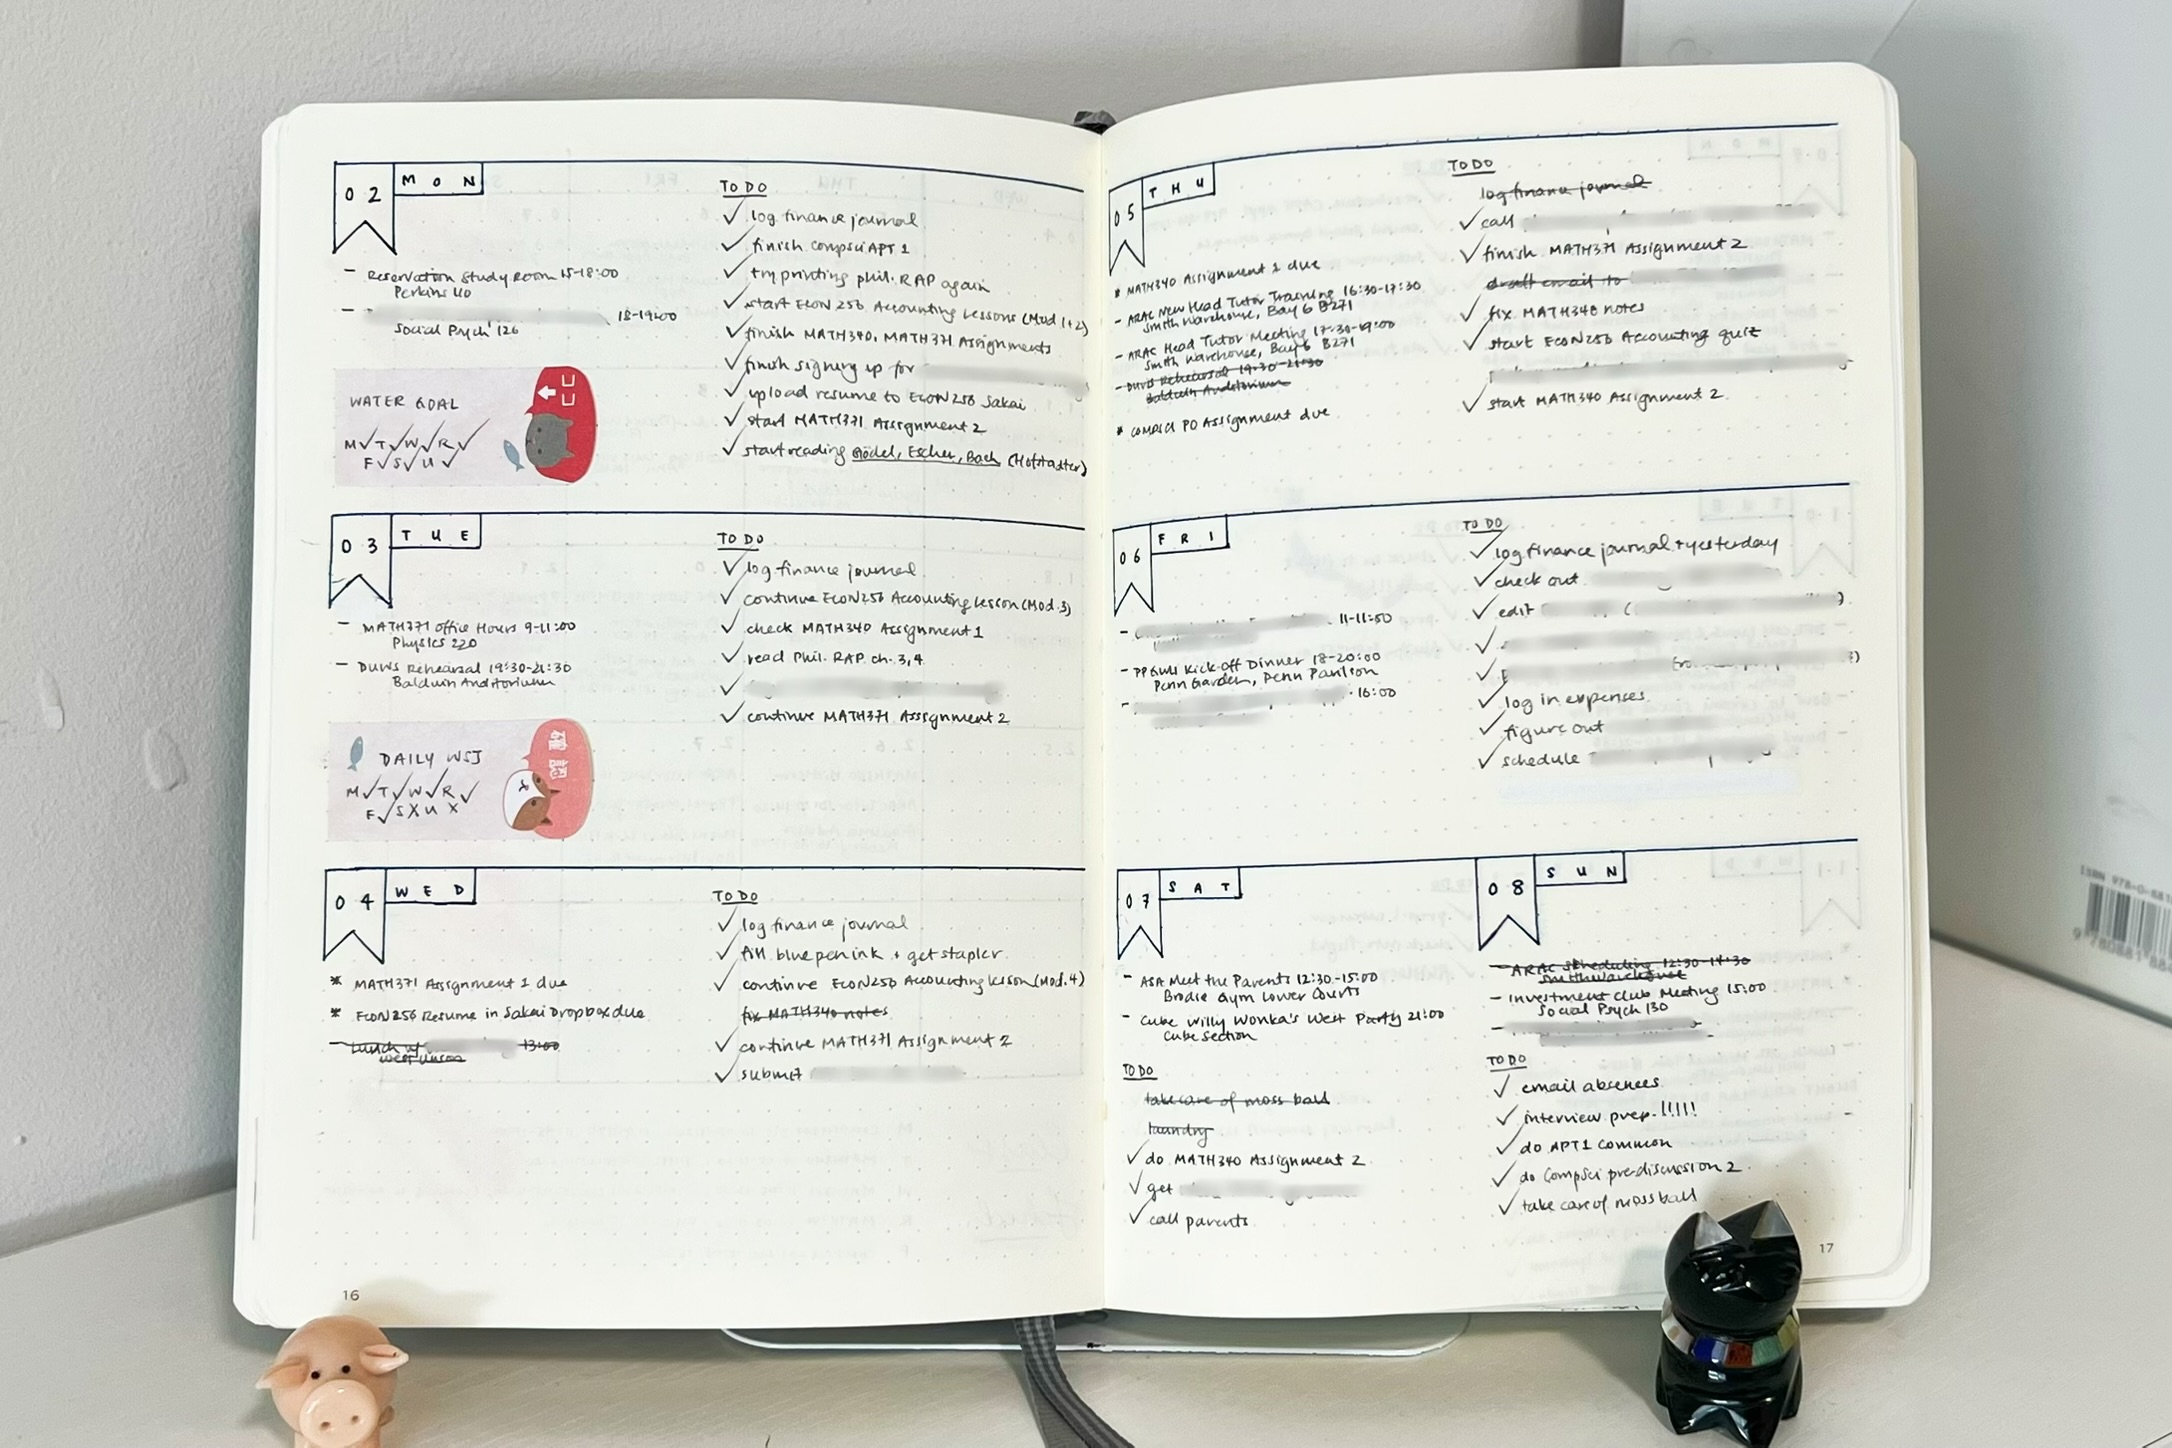 02 MON
- Reservation Study Room 15-18:00
Perkins 110
- 18-19:00
Social Psych 126
WATER GOAL
M✓T✓W✓R✓
F✓S✓U✓
TO DO
✓ log finance journal
✓ finish compsci APT 1
✓ try printing phil. RAP again
✓ start ECON 256 Accounting Lessons (Mod 1+2)
✓ finish MATH340, MATH371 Assignments
✓ finish signing up for
✓ upload resume to ECON256 Sakai
✓ start MATH371 Assignment 2
✓ start reading Gödel, Escher, Bach (Hofstadter)
03 TUE
- MATH371 Office Hours 9-11:00
Physics 220
- DUWS Rehearsal 19:30-21:30
Baldwin Auditorium
DAILY WSJ
M✓T✓W✓R✓
F✓S X U X
TO DO
✓ log finance journal
✓ continue ECON256 Accounting Lesson (Mod.3)
✓ check MATH340 Assignment 1
✓ read Phil. RAP ch. 3,4
✓
✓ continue MATH371 Assignment 2
04 WED
* MATH371 Assignment 1 due
* ECON256 Resume in Sakai Dropbox due
- Lunch w/ 13:00
West Union
TO DO
✓ log finance journal
✓ fill blue pen ink + get stapler
✓ continue ECON256 Accounting Lesson (Mod.4)
fix MATH340 notes
✓ continue MATH371 Assignment 2
✓ submit
16
05 THU
* MATH340 Assignment 1 due
- ARAC New Head Tutor Training 16:30-17:30
Smith Warehouse, Bay 6 B271
- ARAC Head Tutor Meeting 17:30-19:00
Smith Warehouse, Bay 6 B271
- DUWS Rehearsal 19:30-21:30
Baldwin Auditorium
* COMPSCI P0 Assignment due
TO DO
log finance journal
✓ call
✓ finish MATH371 Assignment 2
draft email to
✓ fix MATH340 notes
✓ start ECON256 Accounting quiz
✓ start MATH340 Assignment 2
06 FRI
- 11-11:50
- Kick-off Dinner 18-20:00
Penn Garden, Penn Pavilion
- 16:00
TO DO
✓ log finance journal + yesterday
✓ check out
✓ edit ( )
✓
✓
✓ log in expenses
✓ figure out
✓ schedule
07 SAT
- ASA Meet the Parents 12:30-15:00
Brodie Gym Lower Courts
- Cube Willy Wonka's West Party 21:00
Cube Section
TO DO
take care of moss ball
laundry
✓ do MATH340 Assignment 2
✓ get
✓ call parents
08 SUN
- ARAC Scheduling 12:30-14:30
Smith Warehouse
- Investment Club Meeting 15:00
Social Psych 130
-
TO DO
✓ email absences
✓ interview prep.!!!!!
✓ do APT1 common
✓ do Compsci pre-discussion 2
✓ take care of moss ball
17